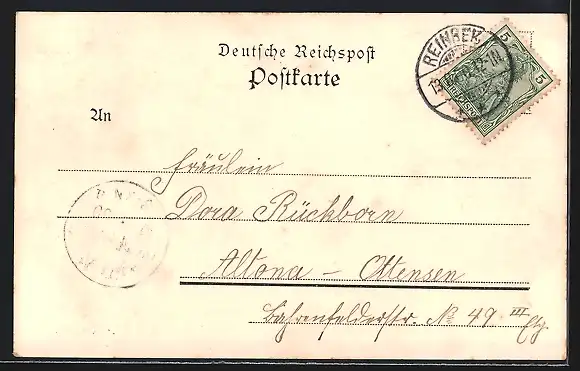 Deutsche Reichspost
Postkarte
REINBEK
5
5
An
Fräulein
Dora Rückborn
Altona – Ottensen
Bahrenfelderstr. No 49 III Etg.